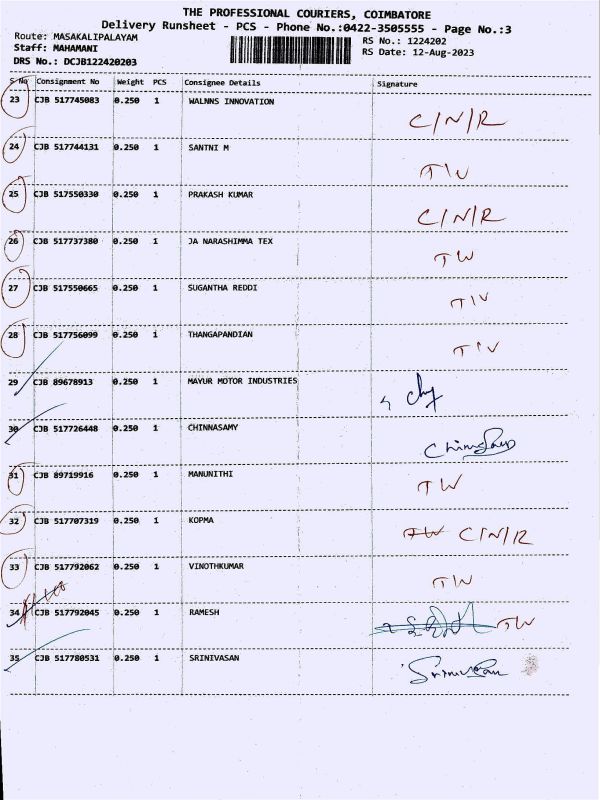 THE PROFESSIONAL COURIERS, COIMBATORE
Delivery Runsheet - PCS - Phone No.:0422-3505555 - Page No.:3
Route: MASAKALIPALAYAM
Staff: MAHAMANI
DRS No.: DCJB122420203
RS No.: 1224202
RS Date: 12-Aug-2023
S No Consignment No Weight PCS Consignee Details Signature
23 CJB 517745083 0.250 1 WALNNS INNOVATION C/N/R
24 CJB 517744131 0.250 1 SANTNI M
25 CJB 517550330 0.250 1 PRAKASH KUMAR C/N/R
26 CJB 517737380 0.250 1 JA NARASHIMMA TEX TW
27 CJB 517550665 0.250 1 SUGANTHA REDDI
28 CJB 517756099 0.250 1 THANGAPANDIAN
29 CJB 89678913 0.250 1 MAYUR MOTOR INDUSTRIES
30 CJB 517726448 0.250 1 CHINNASAMY
31 CJB 89719916 0.250 1 MANUNITHI TW
32 CJB 517707319 0.250 1 KOPMA TW C/N/R
33 CJB 517792062 0.250 1 VINOTHKUMAR TW
34 CJB 517792045 0.250 1 RAMESH TW
35 CJB 517780531 0.250 1 SRINIVASAN Srinivasan